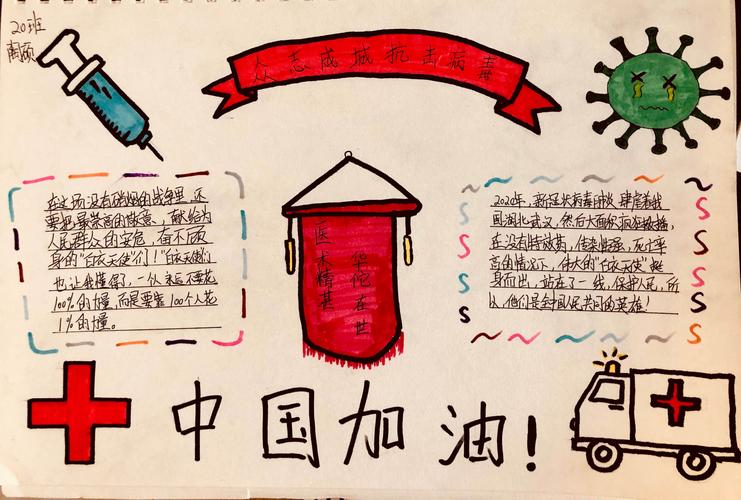 20班
陶颀
众志成城抗击病毒
在这场没有硝烟的战争里,还
要把最崇高的敬意,献给为
人民群众的安危,奋不顾
身的"白衣天使"们!"白衣天使"们
也让我懂得,一个人永远不要花
100%的力量,而是要靠100个人花
1%的力量。
医术精甚
华佗在世
2020年,新冠状病毒肺炎肆虐着我
国湖北武汉,然后大面积疯狂散播,
在没有特效药,传染性强,死亡率
高的情况下,伟大的"白衣天使"挺
身而出,站在了一线,保护人民,所
以他们是全国人民共同的英雄!
中国加油!